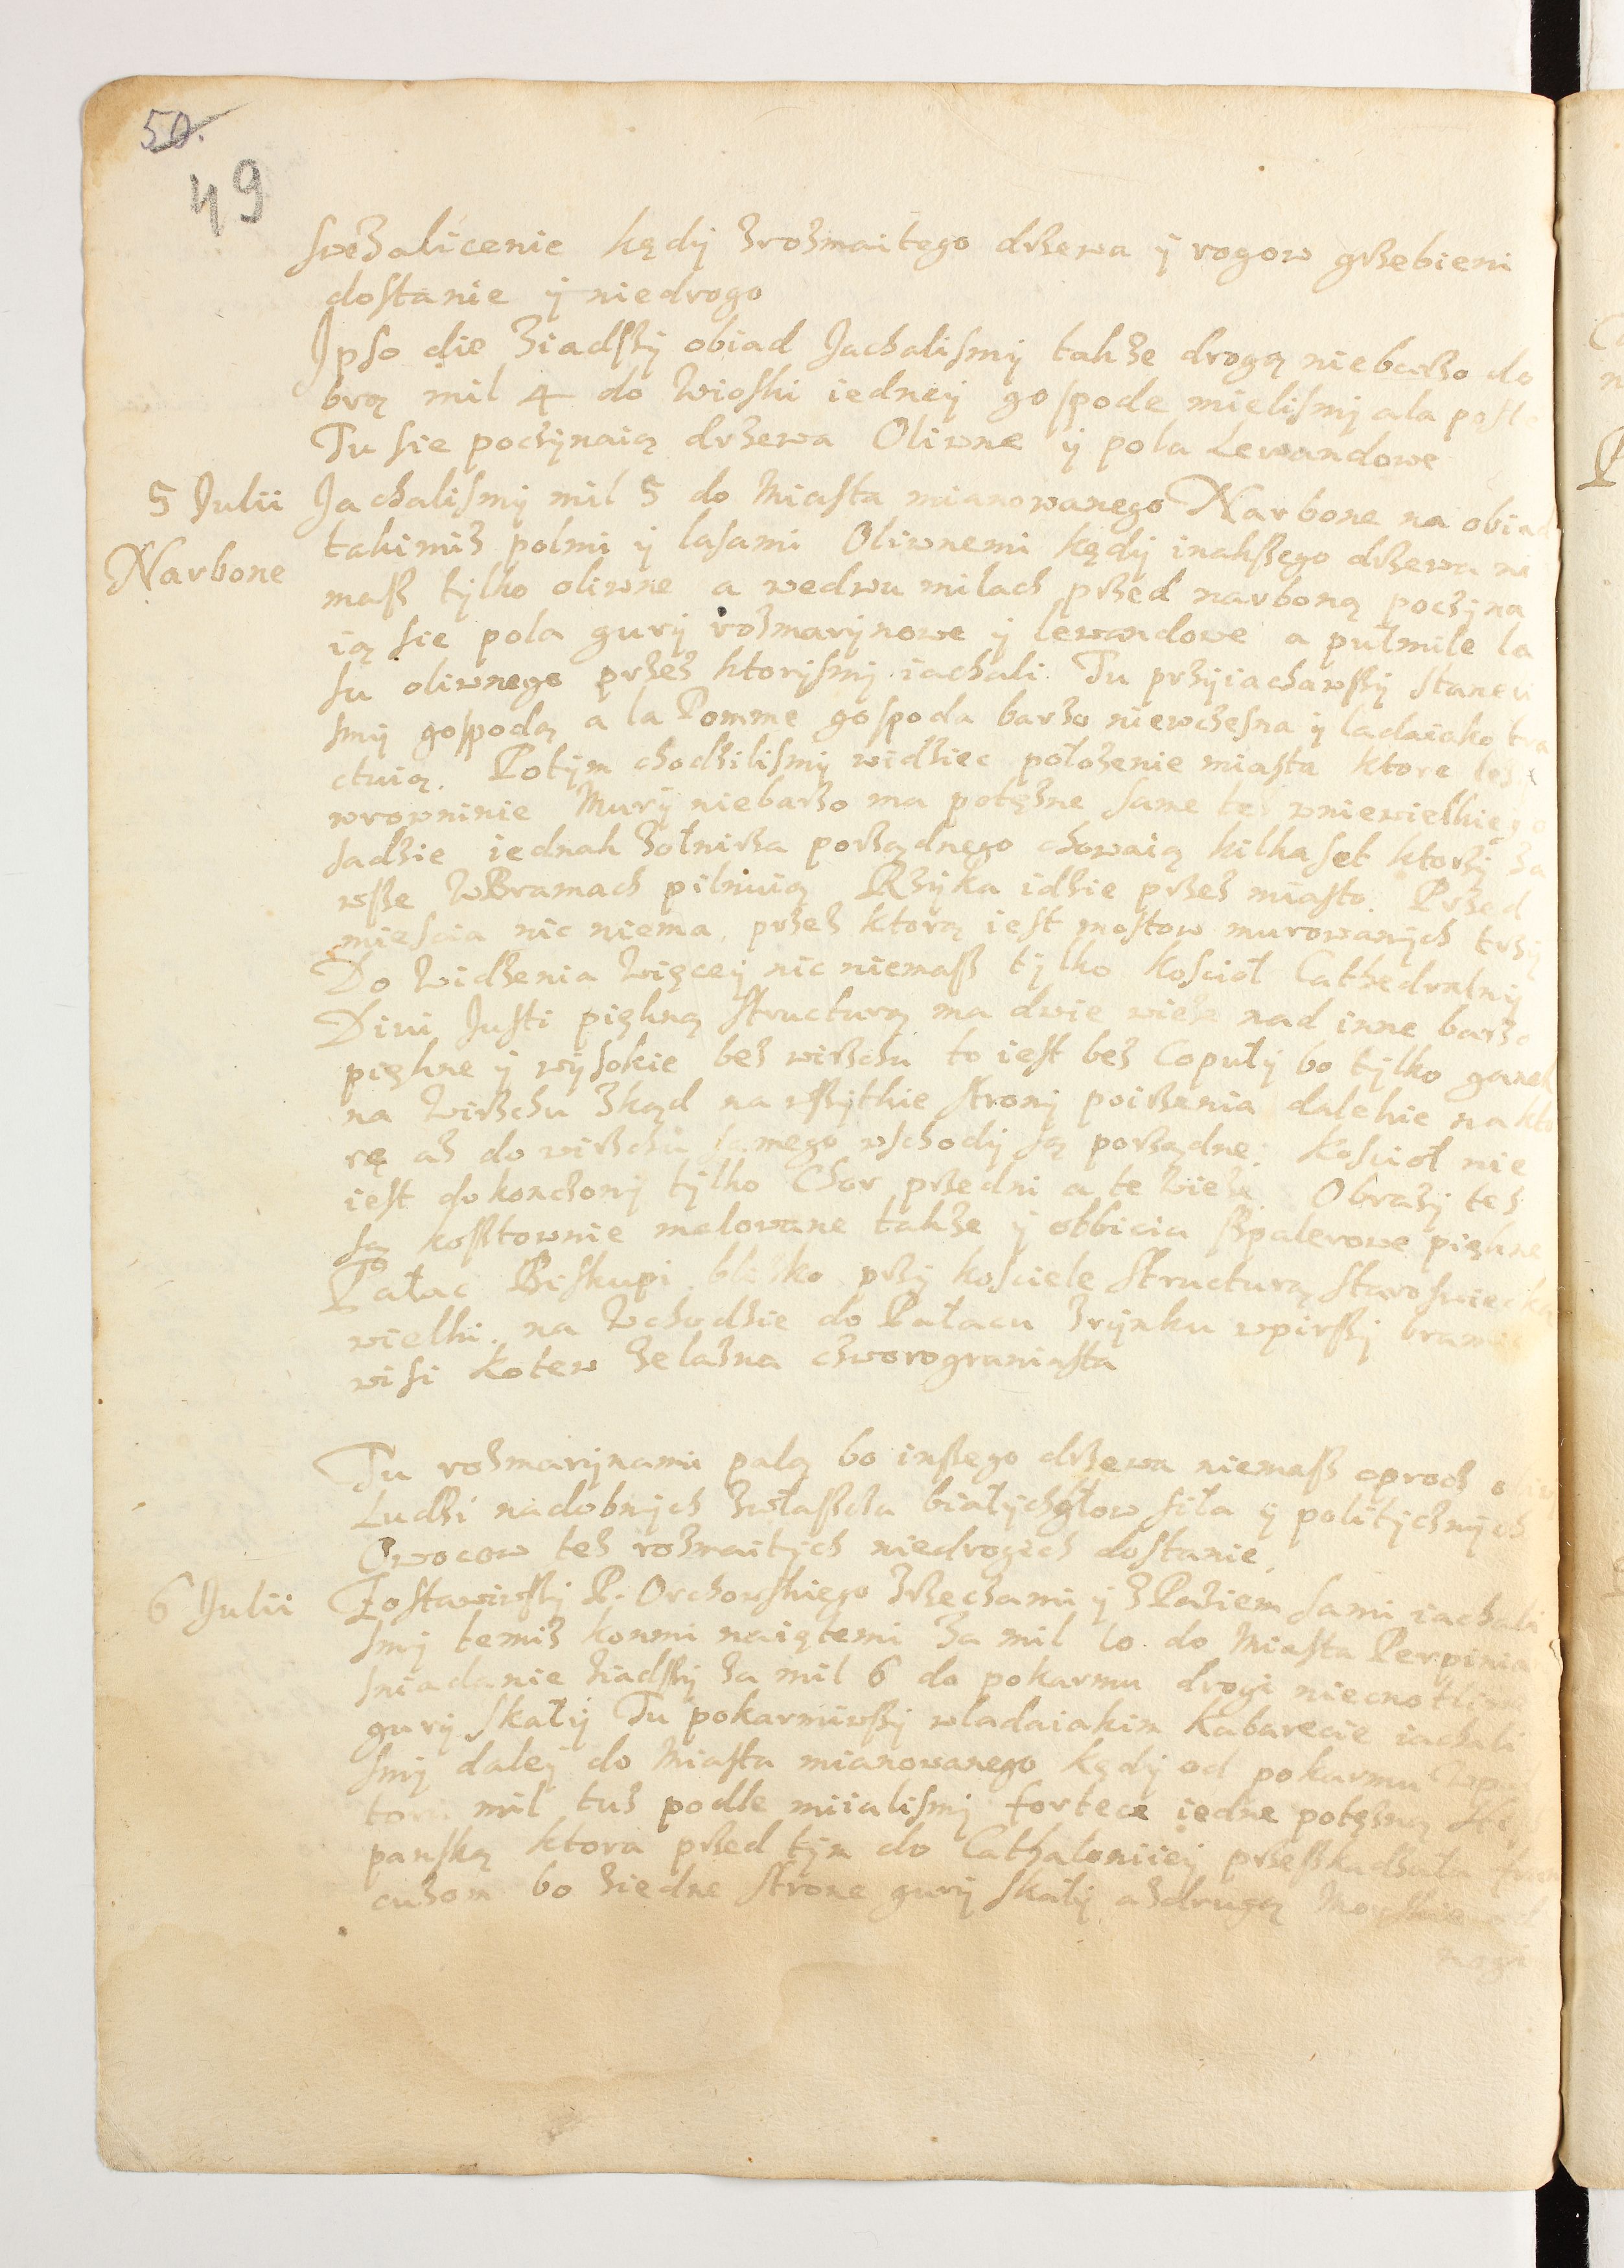 50.
49
kędy zrozmaitego drzewa y rogow grzebieni
dostanie y niedrogo
Ipso die ziadszy obiad Jachalismy także drogą niebarzo do
brą mil 4 do wioski iedney gospode mielismy ala
Tu sie poczynaią drzewa Oliwne y pola Lewandowe
5 Julii Jachalismy mil 5 do Miasta mianowanego Narbone na
Narbone takimiz polmi y lasami Oliwnemi kędy inakszego drzewa ni
masz tylko oliwne a wedwu milach przed narboną poczyna
ią sie pola gury rozmarynowe y lewandowe a pulmile la
su oliwnego przez ktorysmy iachali. Tu przyiachawszy
smy gospodą a la Pomme gospoda barzo niewczesna y ladaiako
ctuią. Potym chodzilismy widziec położenie miasta ktore
wrowninie Mury niebarzo ma potężne same też wniewielkie
sadzie iednak żołnirza porządnego chowaią kilkaset ktorzy za
wsze wBramach pilnuią Rzyka idzie przez miasto. Przed
miescia nic niema, przez ktorą iest mostow murowanych trzy
Do widzenia więcey nic niemasz tylko Koscioł Cathedralny
Divi Justi piękną structurą ma dwie wieże nad inne barzo
piękne y wysokie bez wirzchu to iest bez Copuły bo tylko
na wirzchu zkąd na wszytkie strony poirzenia dalekie na kto
rę asz do wirzchu samego wschody są porządne. Koscioł nie
iest dokonczony tylko Chor przedni a te wieże. Obrazy też
są kosztownie malowane także y obbicia szpalerowe piękne
Pałac Biskupi blisko przy kosciele structurą staroswiecką
wielki. na wchodzie do Pałacu zrynku wpirszy
wisi Kotew żelazna czworograniasta
Tu rozmarynami palą bo inszego drzewa niemasz oproch
Ludzi nadobnych zwłaszcza białychgłow siła y politycznych
Owocow też rozmaitych niedrogich dostanie.
6 Julii Zostawiwszy P. Orchowskiego zrzeczami y zPaziem sami iachali
smy temiz konmi naiętemi za mil 10 do Miasta
sniadanie ziadszy za mil 6 do pokarmu drogi
gury skały Tu pokarmiwszy wladaiakim Kabarecie iachali
smy daley do Miasta mianowanego kędy od pokarmu
mil tuż podle miialismy fortece iedne potężną
panską ktora przed tym do Cathaloniiey przeszkadzała
cuzom bo ziedne strone gury skały azdrugą